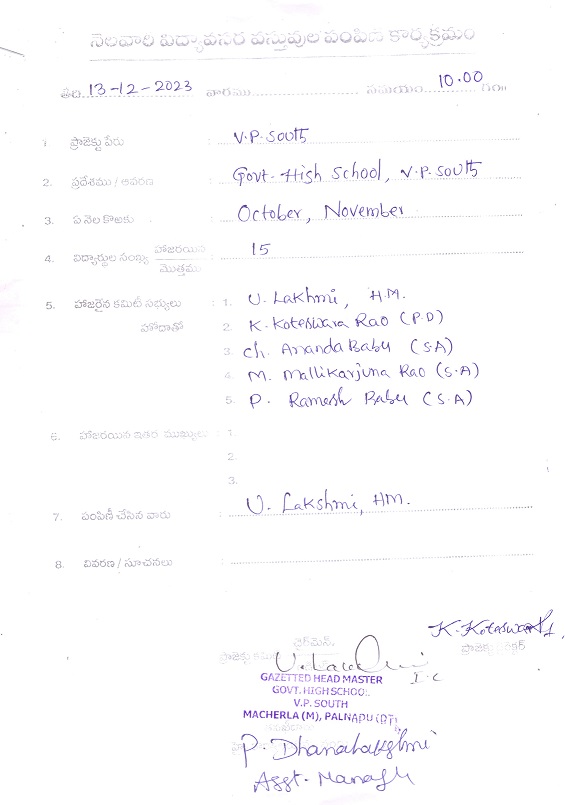 నెలవారి విద్యావసర వస్తువుల పంపిణీ కార్యక్రమం
తేది. 13-12-2023 వారము సమయం 10.00 గం॥
1 ప్రాజెక్టు పేరు : V.P. South
2. ప్రదేశము / ఆవరణ : Govt. High School, V.P. South
3. ఏ నెల కొఱకు : October, November
4. విద్యార్థుల సంఖ్య హాజరయిన : 15
మొత్తము
5. హాజరైన కమిటీ సభ్యులు : 1. U. Lakhmi, H.M.
హోదాతో 2. K. Koteswara Rao (P.D)
3. Ch. Ananda Babu (S.A)
4. M. Mallikarjuna Rao (S.A)
5. P. Ramesh Babu (S.A)
6. హాజరయిన ఇతర ముఖ్యులు : 1.
2.
3.
7. పంపిణీ చేసిన వారు : U. Lakshmi, HM.
8. వివరణ / సూచనలు :
ఛైర్మెన్,
ప్రాజెక్టు కమిటీ
GAZETTED HEAD MASTER
GOVT. HIGH SCHOOL
V.P. SOUTH
MACHERLA (M), PALNADU (DT)
P. Dhanalakshmi